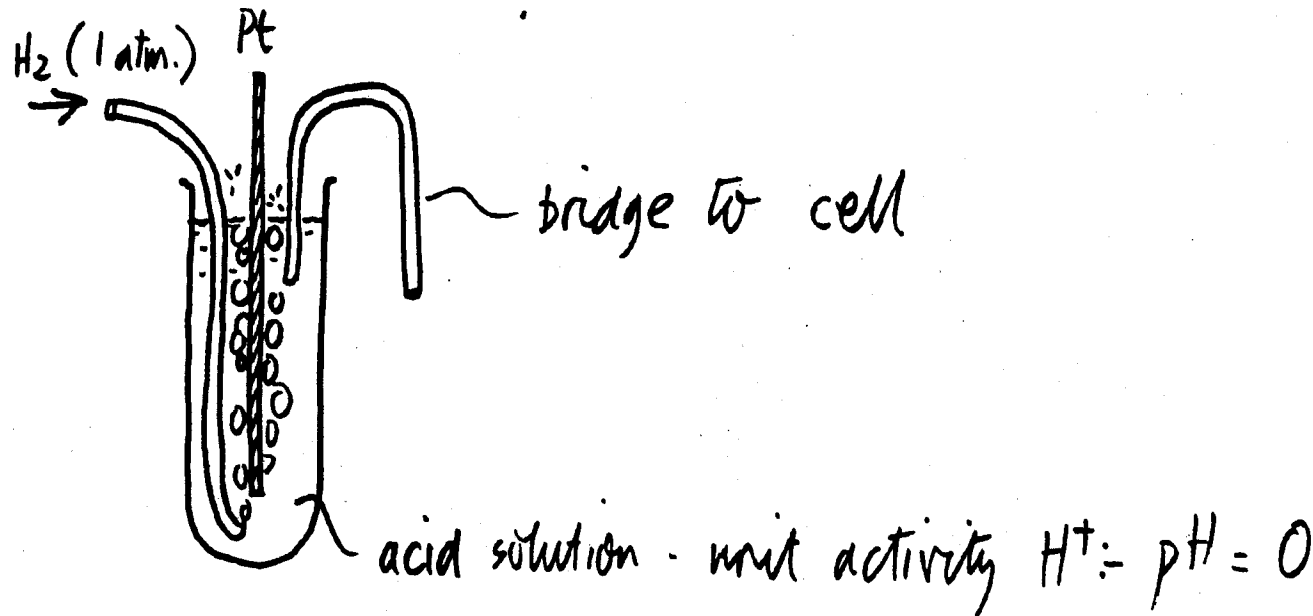 H2 (1 atm.)
Pt
bridge to cell
acid solution - unit activity H+:- pH = 0